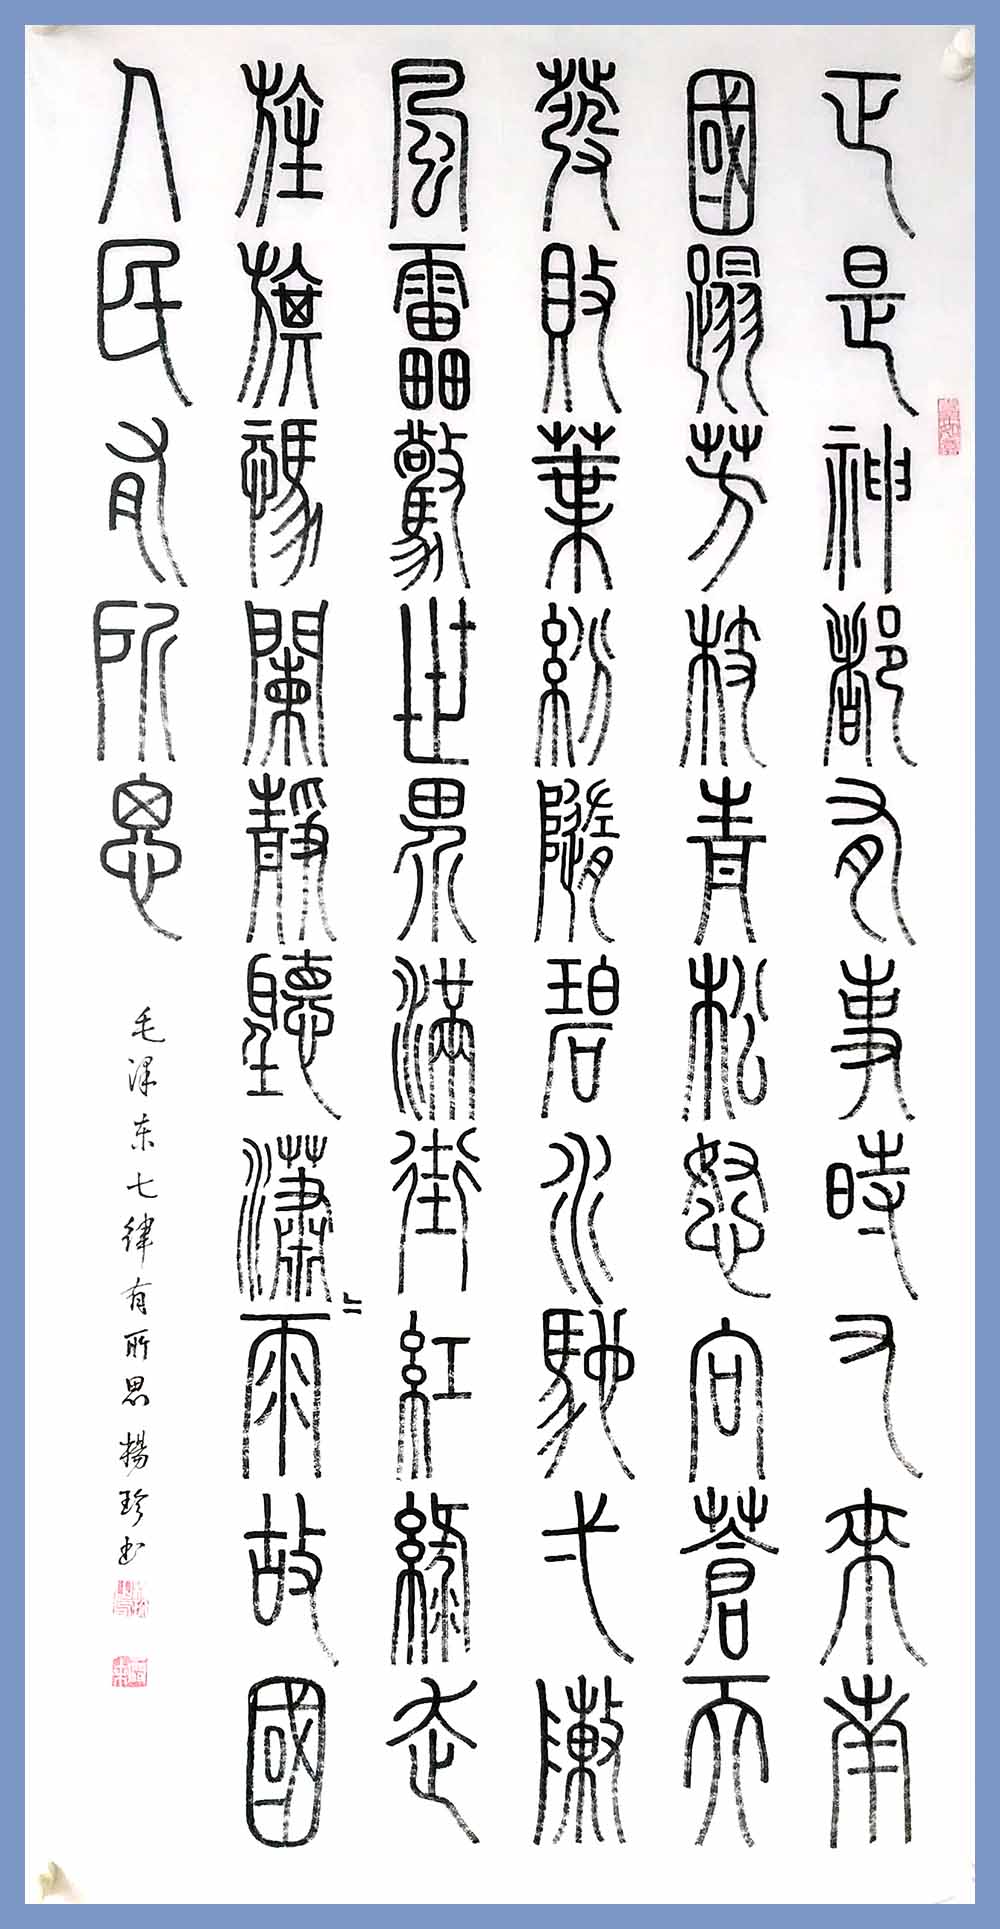 正是神都有事時又來南
國蹋芳枝青松怒向蒼天
發敗葉紛隨碧水馳弌陣
風靁驚世界滿街紅綠走
旌旗憑闌靜聽瀟〻雨故國
人民有所思
毛泽东七律有所思 楊珍书